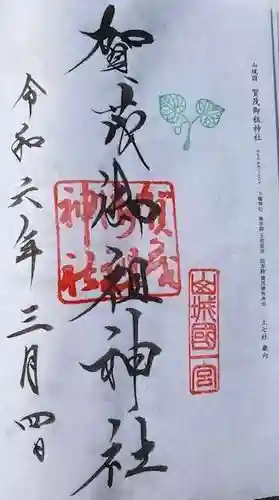 山城國 賀茂御祖神社
賀茂御祖神社
賀茂御祖神社
山城國一宮
令和六年三月四日